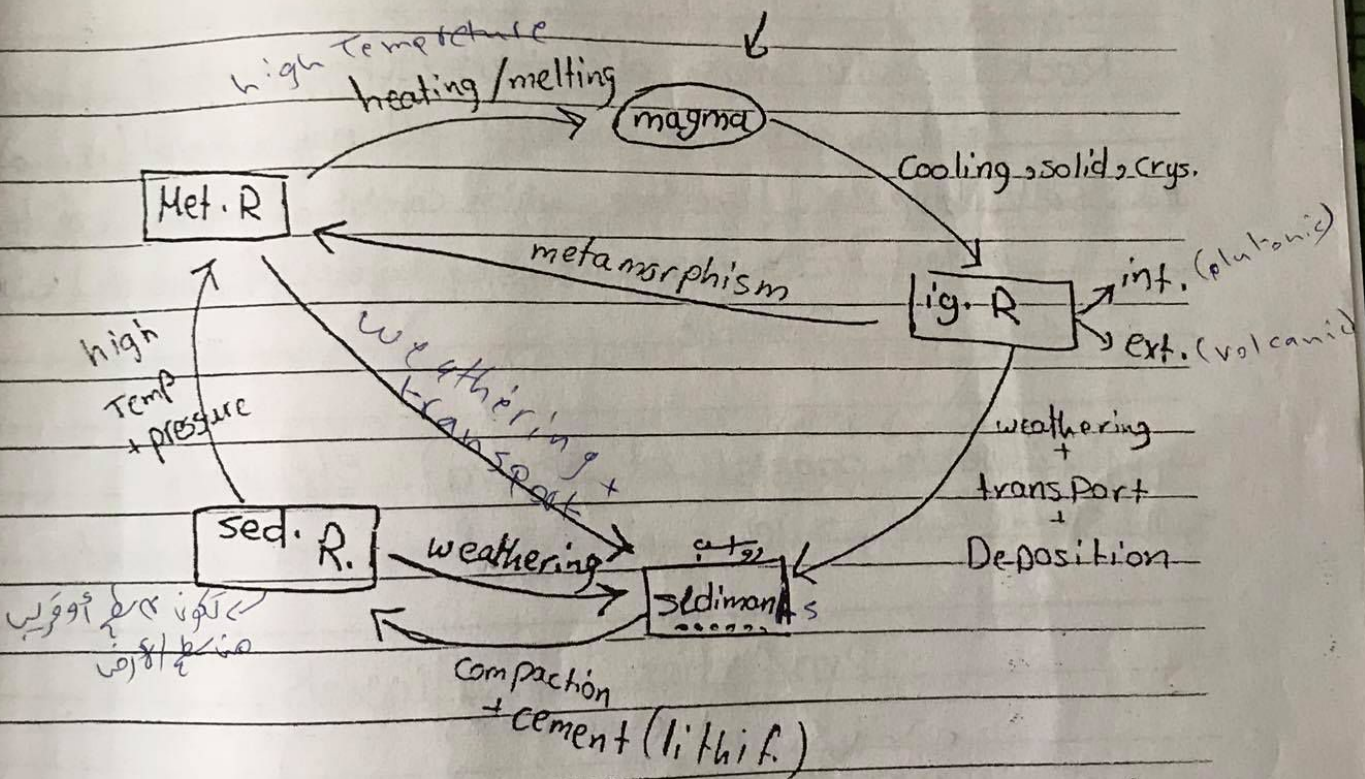 high Tempreture
heating/melting
magma
Cooling, solid, crys.
Met. R
metamorphism
ig. R
int. (plutonic)
ext. (volcanic)
high
Temp
+ pressure
weathering +
transport
weathering
+
transport
+
Deposition
sed. R.
weathering
sedimants
أو قريب
من سطح الأرض
compaction
+ cement (lithif.)